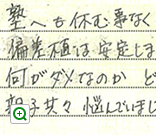 塾へも休む事なく
偏差値は安定しま
何がダメなのか ど
親子共々 悩んでいまし